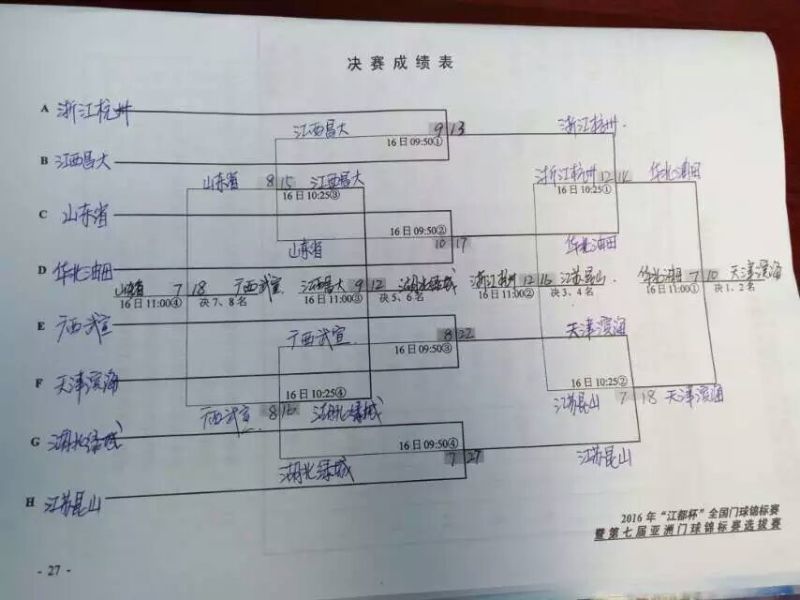 决赛成绩表
A 浙江杭州
江西昌大 9 13 浙江杭州
16日09:50①
B 江西昌大
山东省 8 15 江西昌大 浙江杭州 12 14 华北油田
16日10:25③ 16日10:25①
C 山东省
16日09:50②
山东省 10 17 华北油田
D 华北油田
山东省 7 18 广西武宣 江西昌大 9 12 湖北绿城 浙江杭州 12 16 江苏昆山 华北油田 7 10 天津滨海
16日11:00④ 决7、8名 16日11:00③ 决5、6名 16日11:00② 决3、4名 16日11:00① 决1、2名
E 广西武宣
广西武宣 8 22 天津滨海
16日09:50③
F 天津滨海
16日10:25④ 16日10:25②
广西武宣 8 16 湖北绿城 江苏昆山 7 18 天津滨海
G 湖北绿城
16日09:50④
湖北绿城 7 27 江苏昆山
H 江苏昆山
2016年“江都杯”全国门球锦标赛
暨第七届亚洲门球锦标赛选拔赛
- 27 -